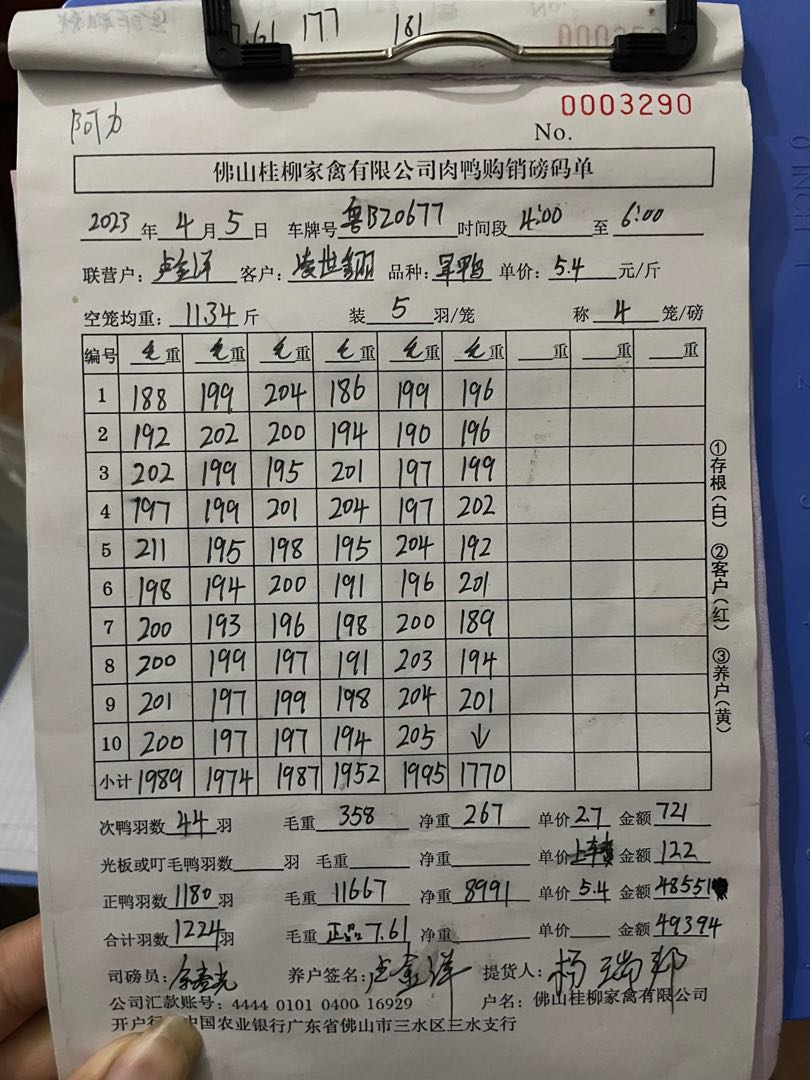 7.61 177 181
阿力
0003290
No.
佛山桂柳家禽有限公司肉鸭购销磅码单
2023年4月5日 车牌号粤B20677时间段4:00至6:00
联营户:卢金洋 客户: 品种:旱鸭 单价:5.4元/斤
空笼均重:11.34斤 装5羽/笼 称4笼/磅
编号 毛重 毛重 毛重 毛重 毛重 毛重 重 重 重
1 188 199 204 186 199 196
2 192 202 200 194 190 196
3 202 199 195 201 197 199
4 197 199 201 204 197 202
5 211 195 198 195 204 192
6 198 194 200 191 196 201
7 200 193 196 198 200 189
8 200 199 197 191 203 194
9 201 197 199 198 204 201
10 200 197 197 194 205 ↓
小计 1989 1974 1987 1952 1995 1770
次鸭羽数44羽 毛重358 净重267 单价2.7 金额721
光板或叮毛鸭羽数 羽 毛重 净重 单价上车费 金额122
正鸭羽数1180羽 毛重11667 净重8991 单价5.4 金额48551
合计羽数1224羽 毛重正品7.61 净重 单价 金额49394
司磅员: 养户签名:卢金洋 提货人:杨瑞邦
公司汇款账号:4444 0101 0400 16929 户名:佛山桂柳家禽有限公司
开户行 中国农业银行广东省佛山市三水区三水支行
①存根(白) ②客户(红) ③养户(黄)